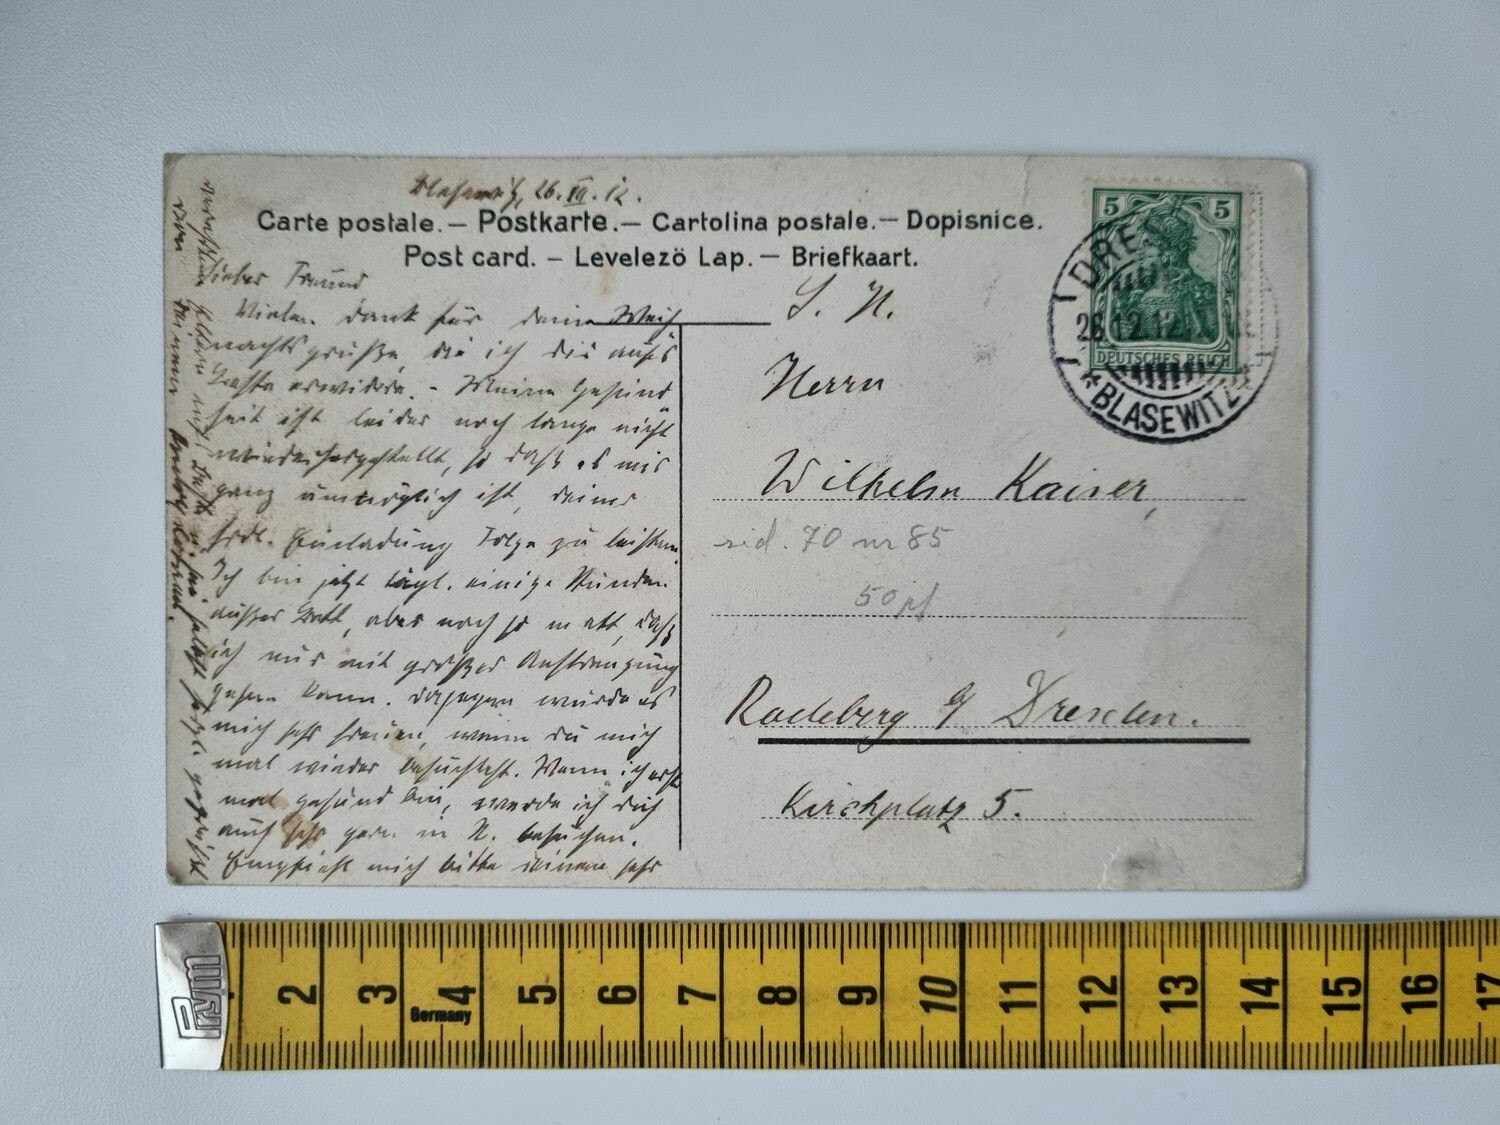 Blasewitz, 26.XII.12.
Carte postale. – Postkarte. – Cartolina postale. – Dopisnice.
Post card. – Levelezö Lap. – Briefkaart.
Lieber Freund
Vielen Dank für deine Weih
nachtsgrüße, die ich dir aufs
Beste erwidere. - Meine Gesund
heit ist leider noch lange nicht
wiederhergestellt, so daß es mir
ganz unmöglich ist, deiner
frdl. Einladung Folge zu leisten.
Ich bin jetzt tägl. einige Stunden
außer Bett, aber noch so matt, daß
ich nur mit großer Anstrengung
gehen kann. Dagegen würde es
mich sehr freuen, wenn du mich
mal wieder besuchtest. Wenn ich erst
mal gesund bin, werde ich dich
auch sehr gern in R. besuchen.
Empfiehl mich bitte deinen sehr
verehrten Eltern aufs Beste u. sei selbst herzl. gegrüßt
von deinem
S. H.
Herrn
Wilhelm Kaiser,
rid. 70 nr 85
50 pf
Radeberg b/ Dresden.
Kirchplatz 5.
5 5
DEUTSCHES REICH
DRE
26.12.12
* BLASEWITZ
Prym
2 3 4 5 6 7 8 9 10 11 12 13 14 15 16 17
Germany